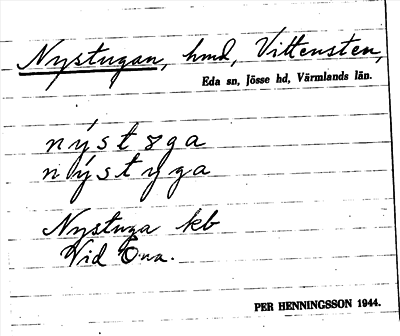 Nystugan, hmd, Vittensten,
Eda sn, Jösse hd, Värmlands län.
nýstɞga
nýstyga
Nystuga kb
Vid Ena.
PER HENNINGSSON 1944.